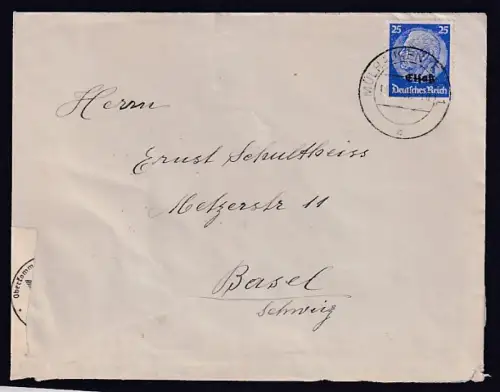 25 25
Elsaß
Deutsches Reich
MÜLHAUSEN
Herrn
Ernst Schultheiss
Metzerstr 11
Basel
Schweiz
Oberkomm